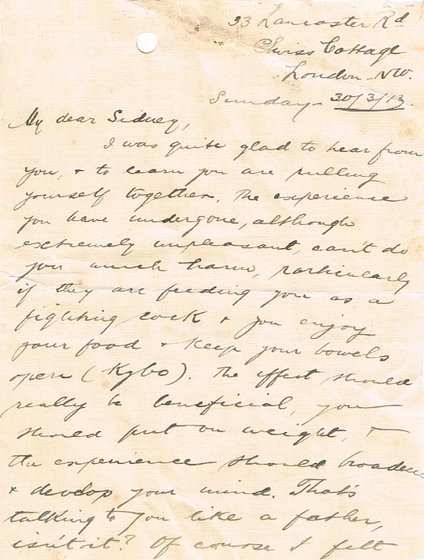 33 Lancaster Rd
Swiss Cottage
London N.W.
Sunday - 30/3/13.
My dear Sidney,
I was quite glad to hear from
you, & to learn you are pulling
yourself together. The experience
you have undergone, although
extremely unpleasant, can't do
you much harm, particularly
if they are feeding you as a
fighting cock & you enjoy
your food & keep your bowels
open (Kybo). The effect should
really be beneficial, you
should put on weight, &
the experience should broaden
& develop your mind. That's
talking to you like a father,
isn't it? Of course I felt